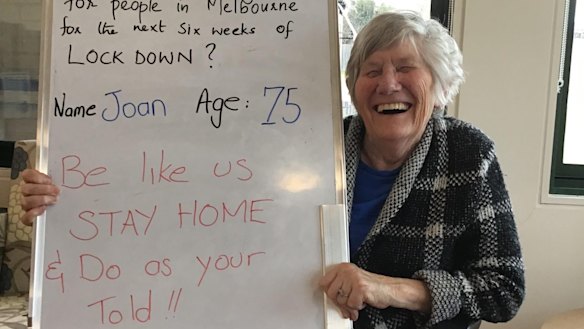 for people in Melbourne
for the next Six weeks of
LOCK DOWN?
Name Joan Age: 75
Be like us
STAY HOME
& Do as your
Told!!